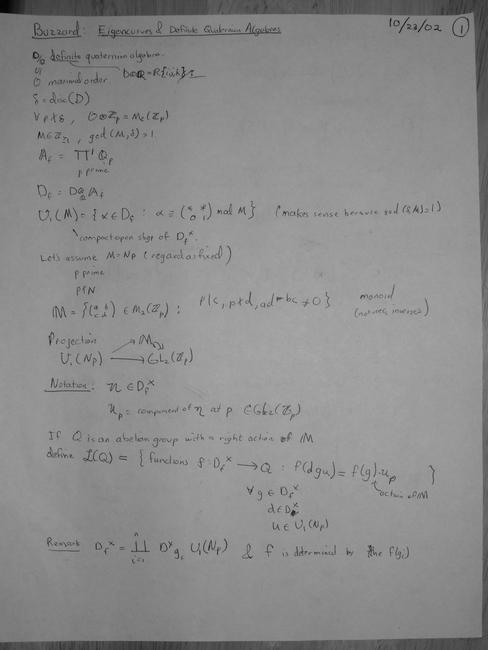 Buzzard: Eigencurves & Definite Quaternion Algebras 10/23/02 ①
D/Q definite quaternion algebra.
O maximal order. D⊗R = R{i,j,k}
δ = disc(D)
∀ p∤δ, O⊗Z_p = M_2(Z_p)
M∈Z_≥1, gcd(M,δ)=1.
A_f = Π' Q_p
p prime
D_f = D⊗_Q A_f
U_1(M) = {α∈D_f : α ≡ (* * / 0 1) mod M} (makes sense because gcd(δ,M)=1)
compact open sbgp of D_f^×.
Let's assume M=Np (regard as fixed)
p prime
p∤N
𝕄 = {(a b / c d) ∈ M_2(Z_p) : p|c, p∤d, ad-bc ≠ 0} monoid
(not nec. inverses)
Projection
U_1(Np) → 𝕄
U_1(Np) → GL_2(Z_p)
Notation: u ∈ D_f^×
u_p = component of u at p ∈ GL_2(Z_p)
If Q is an abelian group with a right action of 𝕄
define L(Q) = { functions f: D_f^× → Q : f(dgu) = f(g)·u_p }
action of 𝕄
∀ g ∈ D_f^×
d ∈ D^×
u ∈ U_1(Np)
Remark D_f^× = ∐_{i=1}^n D^× g_i U_1(Np) & f is determined by the f(g_i)